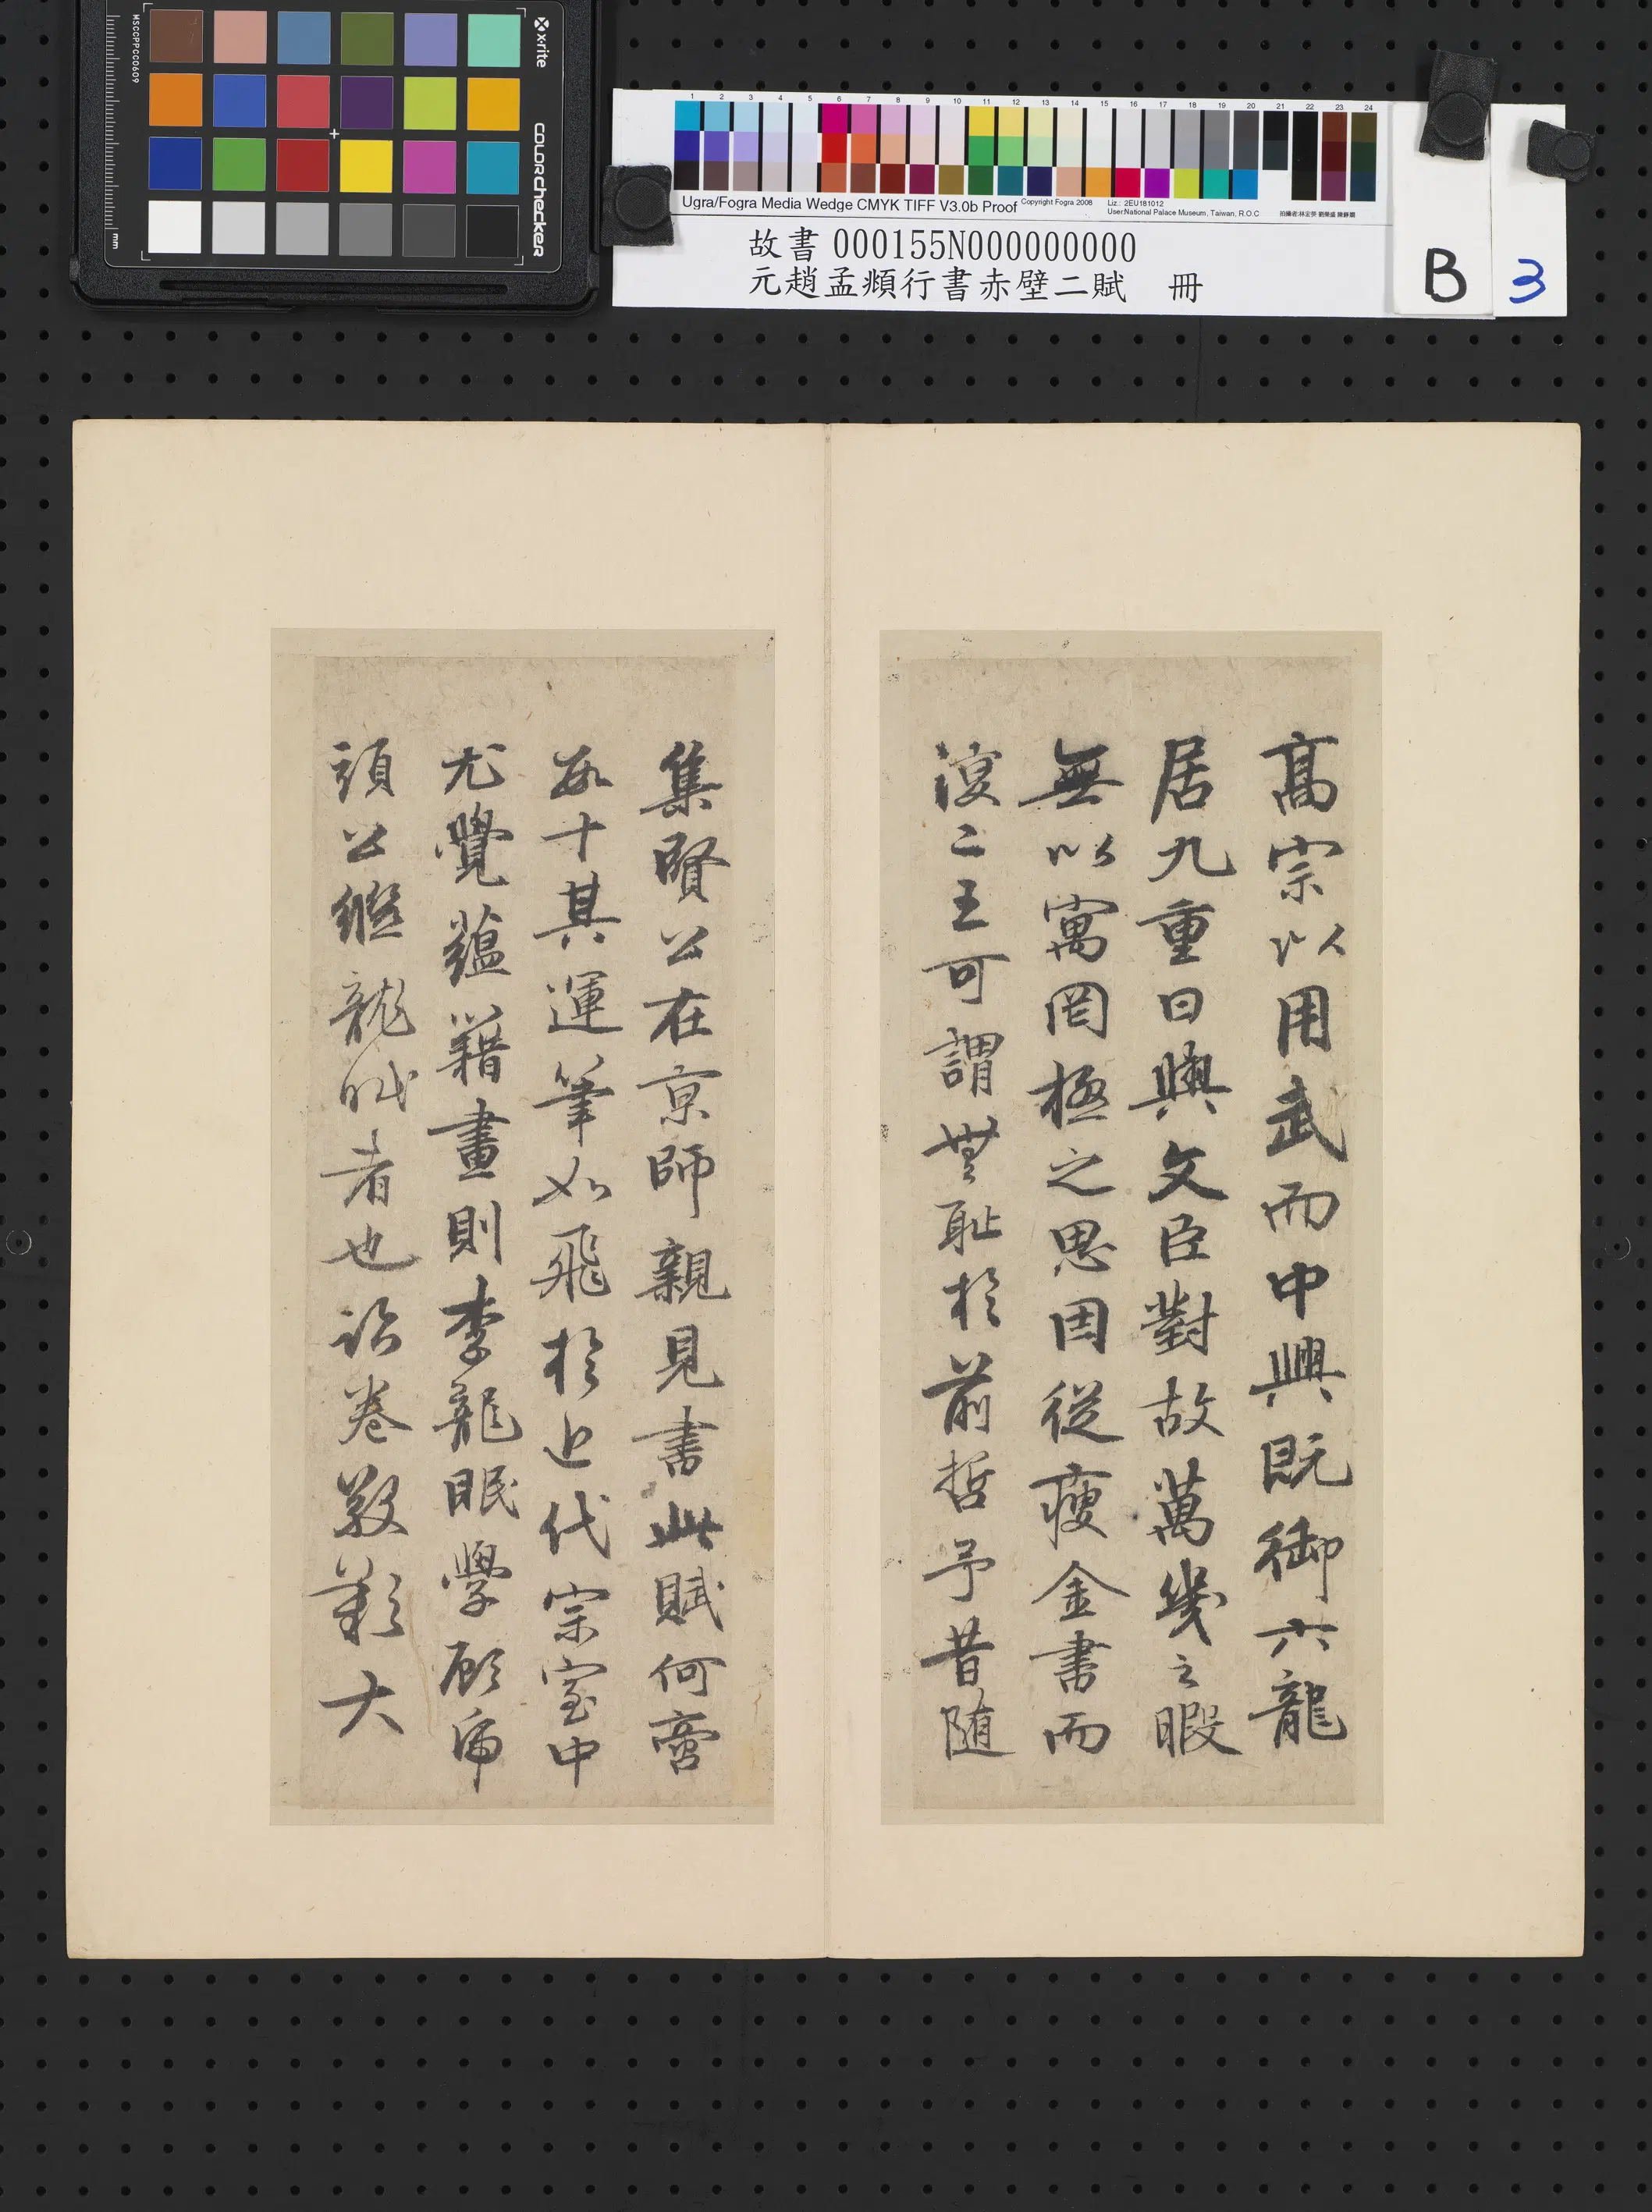 x·rite
colorchecker
MSCCPPCC0609
mm
1 2 3 4 5 6 7 8 9 10 11 12 13 14 15 16 17 18 19 20 21 22 23 24
Ugra/Fogra Media Wedge CMYK TIFF V3.0b Proof Copyright Fogra 2008 Liz.: 2EU181012
User:National Palace Museum, Taiwan, R.O.C
故書 000155N000000000
元趙孟頫行書赤壁二賦 冊
B
3
高宗以用武而中興既御六龍
居九重日與文臣對故萬幾之暇
無以寓罔極之思因從瘦金書而
復二王可謂無恥於前哲予昔随
集賢公在京師親見書此賦何啻
數十其運筆如飛於近代宗室中
尤覺蘊藉畫則李龍眠學顧虎
頭公繼龍眠者也卷敬歎大